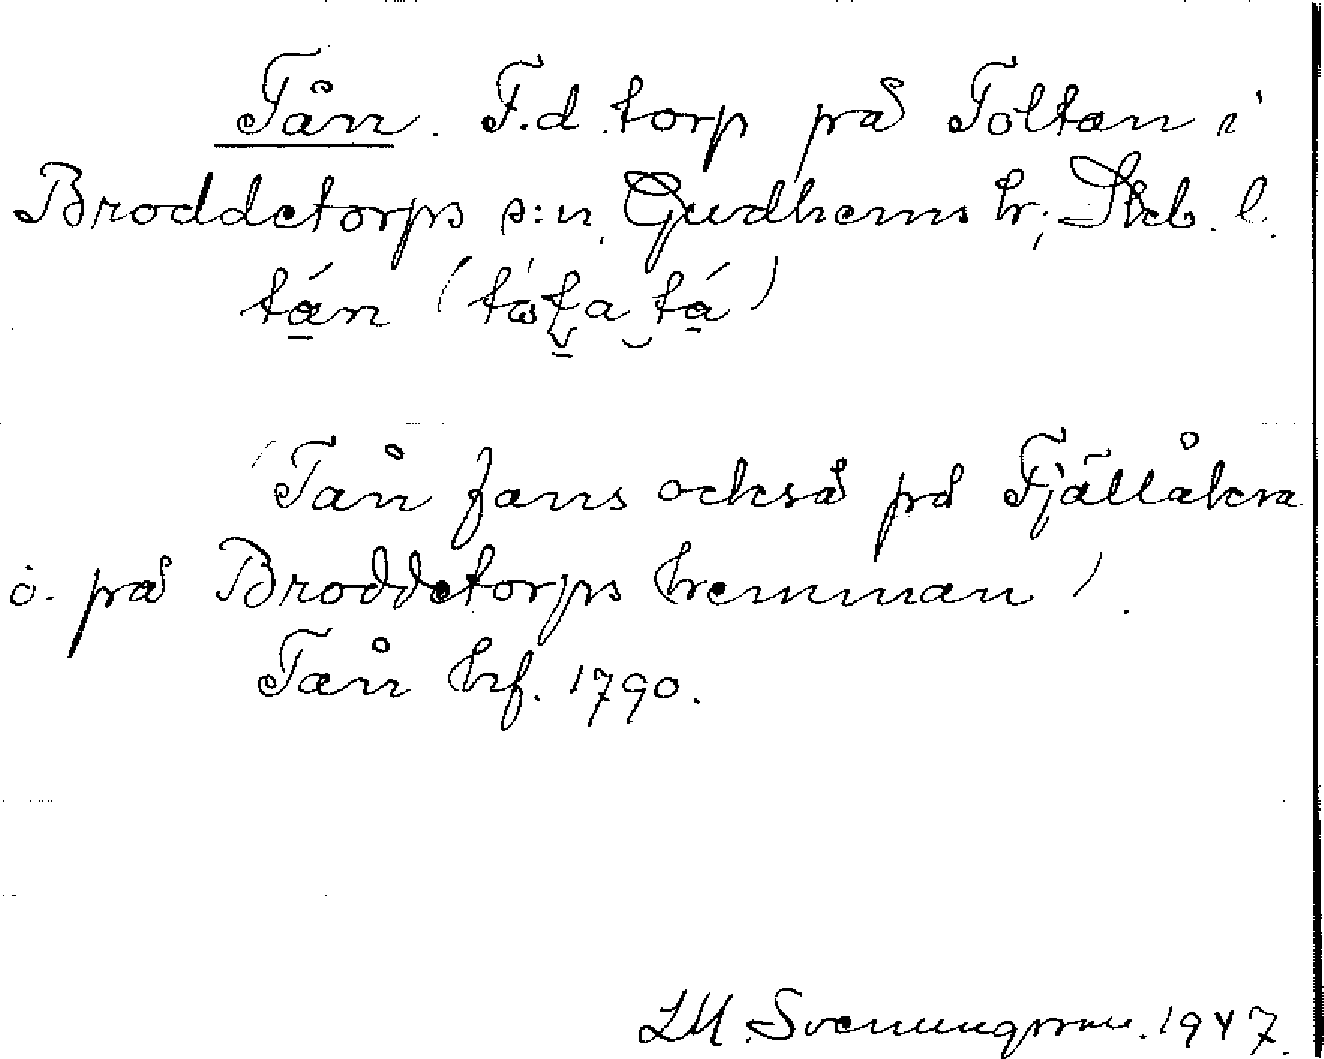 Tån. F.d. torp på Toltan i
Broddetorps s:n, Gudhems hr; Skb. l.
tán (tófa tá)
(Tån fans också på Fjällåkra
o. på Broddetorps hemman).
Tån hf. 1790.
LM. Svenungsson. 1947.